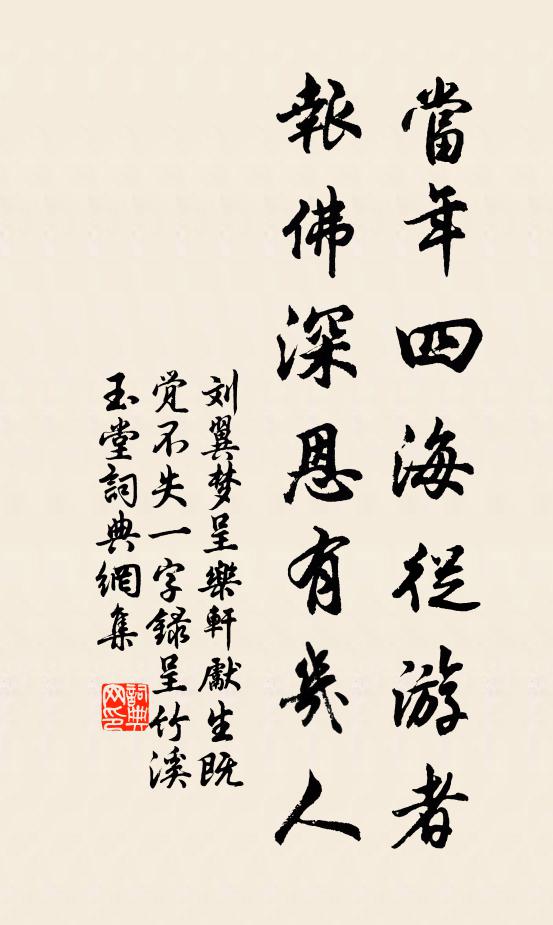 當年四海從游者
報佛深恩有幾人
刘翼梦呈樂軒獻生既
觉不失一字録呈竹溪
玉堂詞典網集
詞典
网印